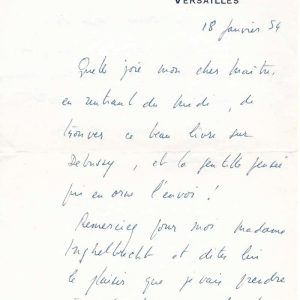 VERSAILLES
18 janvier 54
Quelle joie mon cher Maître,
en rentrant du midi, de
trouver ce beau livre sur
Debussy, et la gentille pensée
qui en orne l'envoi !
Remerciez pour moi madame
Inghelbrecht et dites lui
le plaisir que je vais prendre